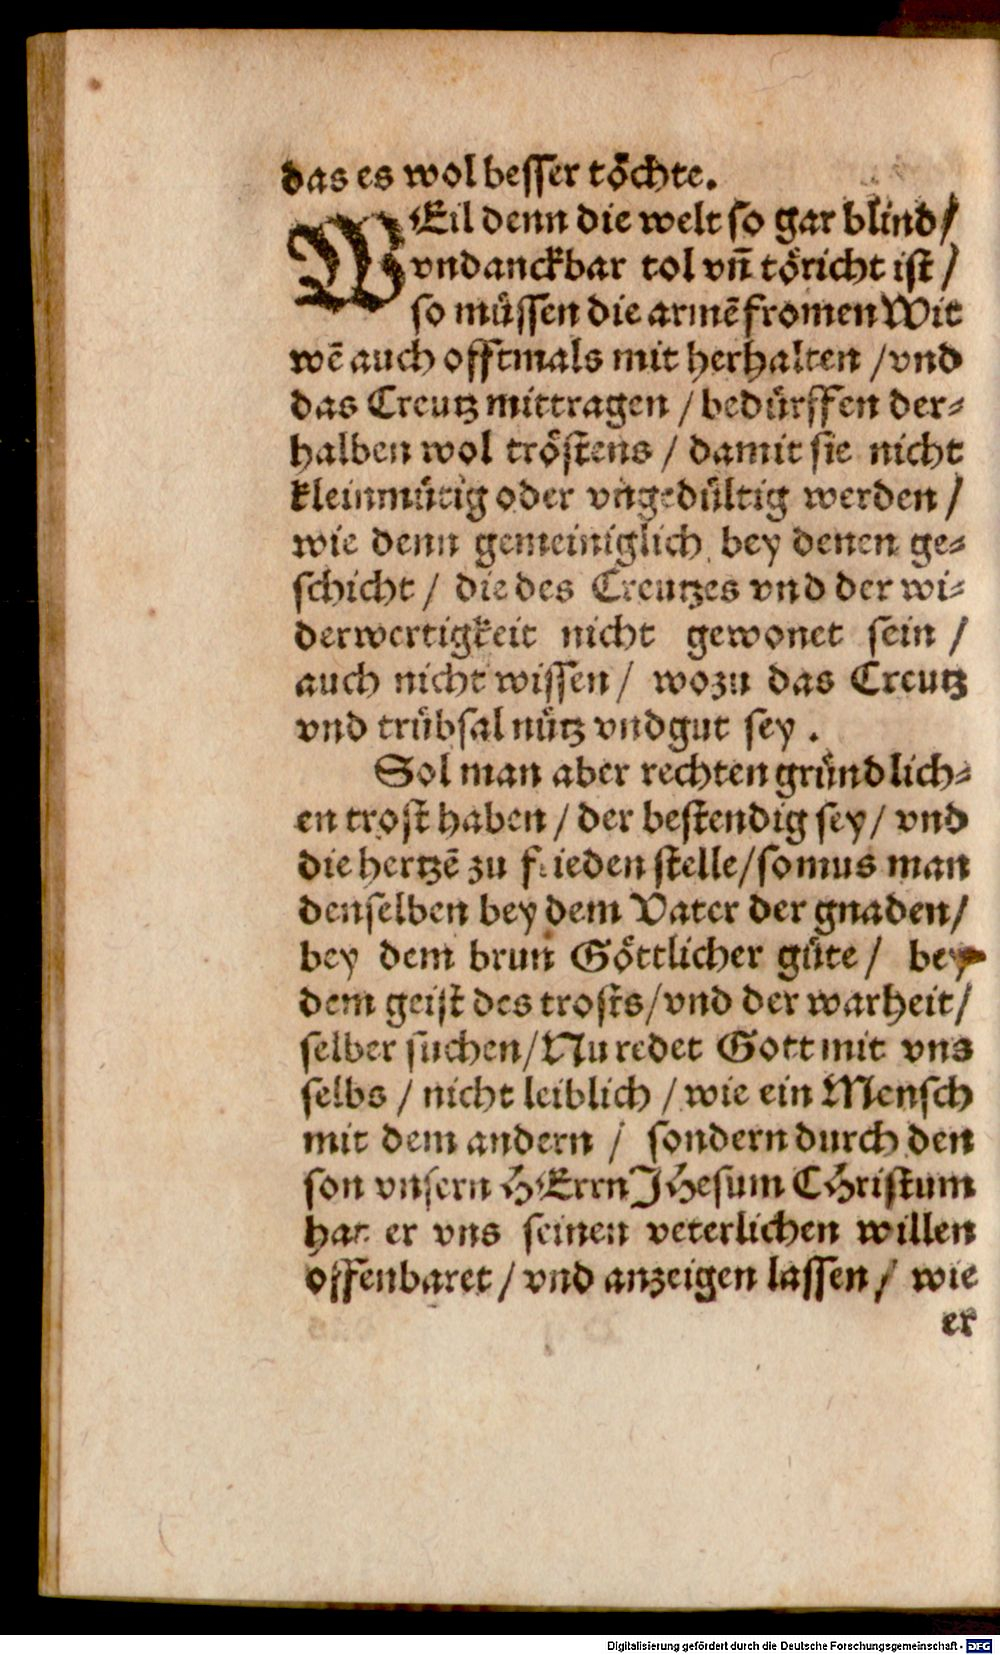 das es wol besser töchte.
WEil denn die welt so gar blind/
vndanckbar tol vñ töricht ist /
so müssen die armẽ fromen Wit
wẽ auch offtmals mit herhalten / vnd
das Creutz mittragen / bedürffen der-
halben wol tröstens / damit sie nicht
kleinmütig oder vngedültig werden /
wie denn gemeiniglich bey denen ge-
schicht / die des Creutzes vnd der wi-
derwertigkeit nicht gewonet sein /
auch nicht wissen / wozu das Creutz
vnd trübsal nütz vnd gut sey .
Sol man aber rechten gründlich-
en trost haben / der bestendig sey / vnd
die hertzẽ zu frieden stelle / so mus man
denselben bey dem Vater der gnaden /
bey dem brun Göttlicher güte / bey
dem geist des trosts / vnd der warheit /
selber suchen / Nu redet Gott mit vns
selbs / nicht leiblich / wie ein Mensch
mit dem andern / sondern durch den
son vnsern HErrn JHesum CHristum
hat er vns seinen veterlichen willen
offenbaret / vnd anzeigen lassen / wie
er
Digitalisierung gefördert durch die Deutsche Forschungsgemeinschaft - DFG